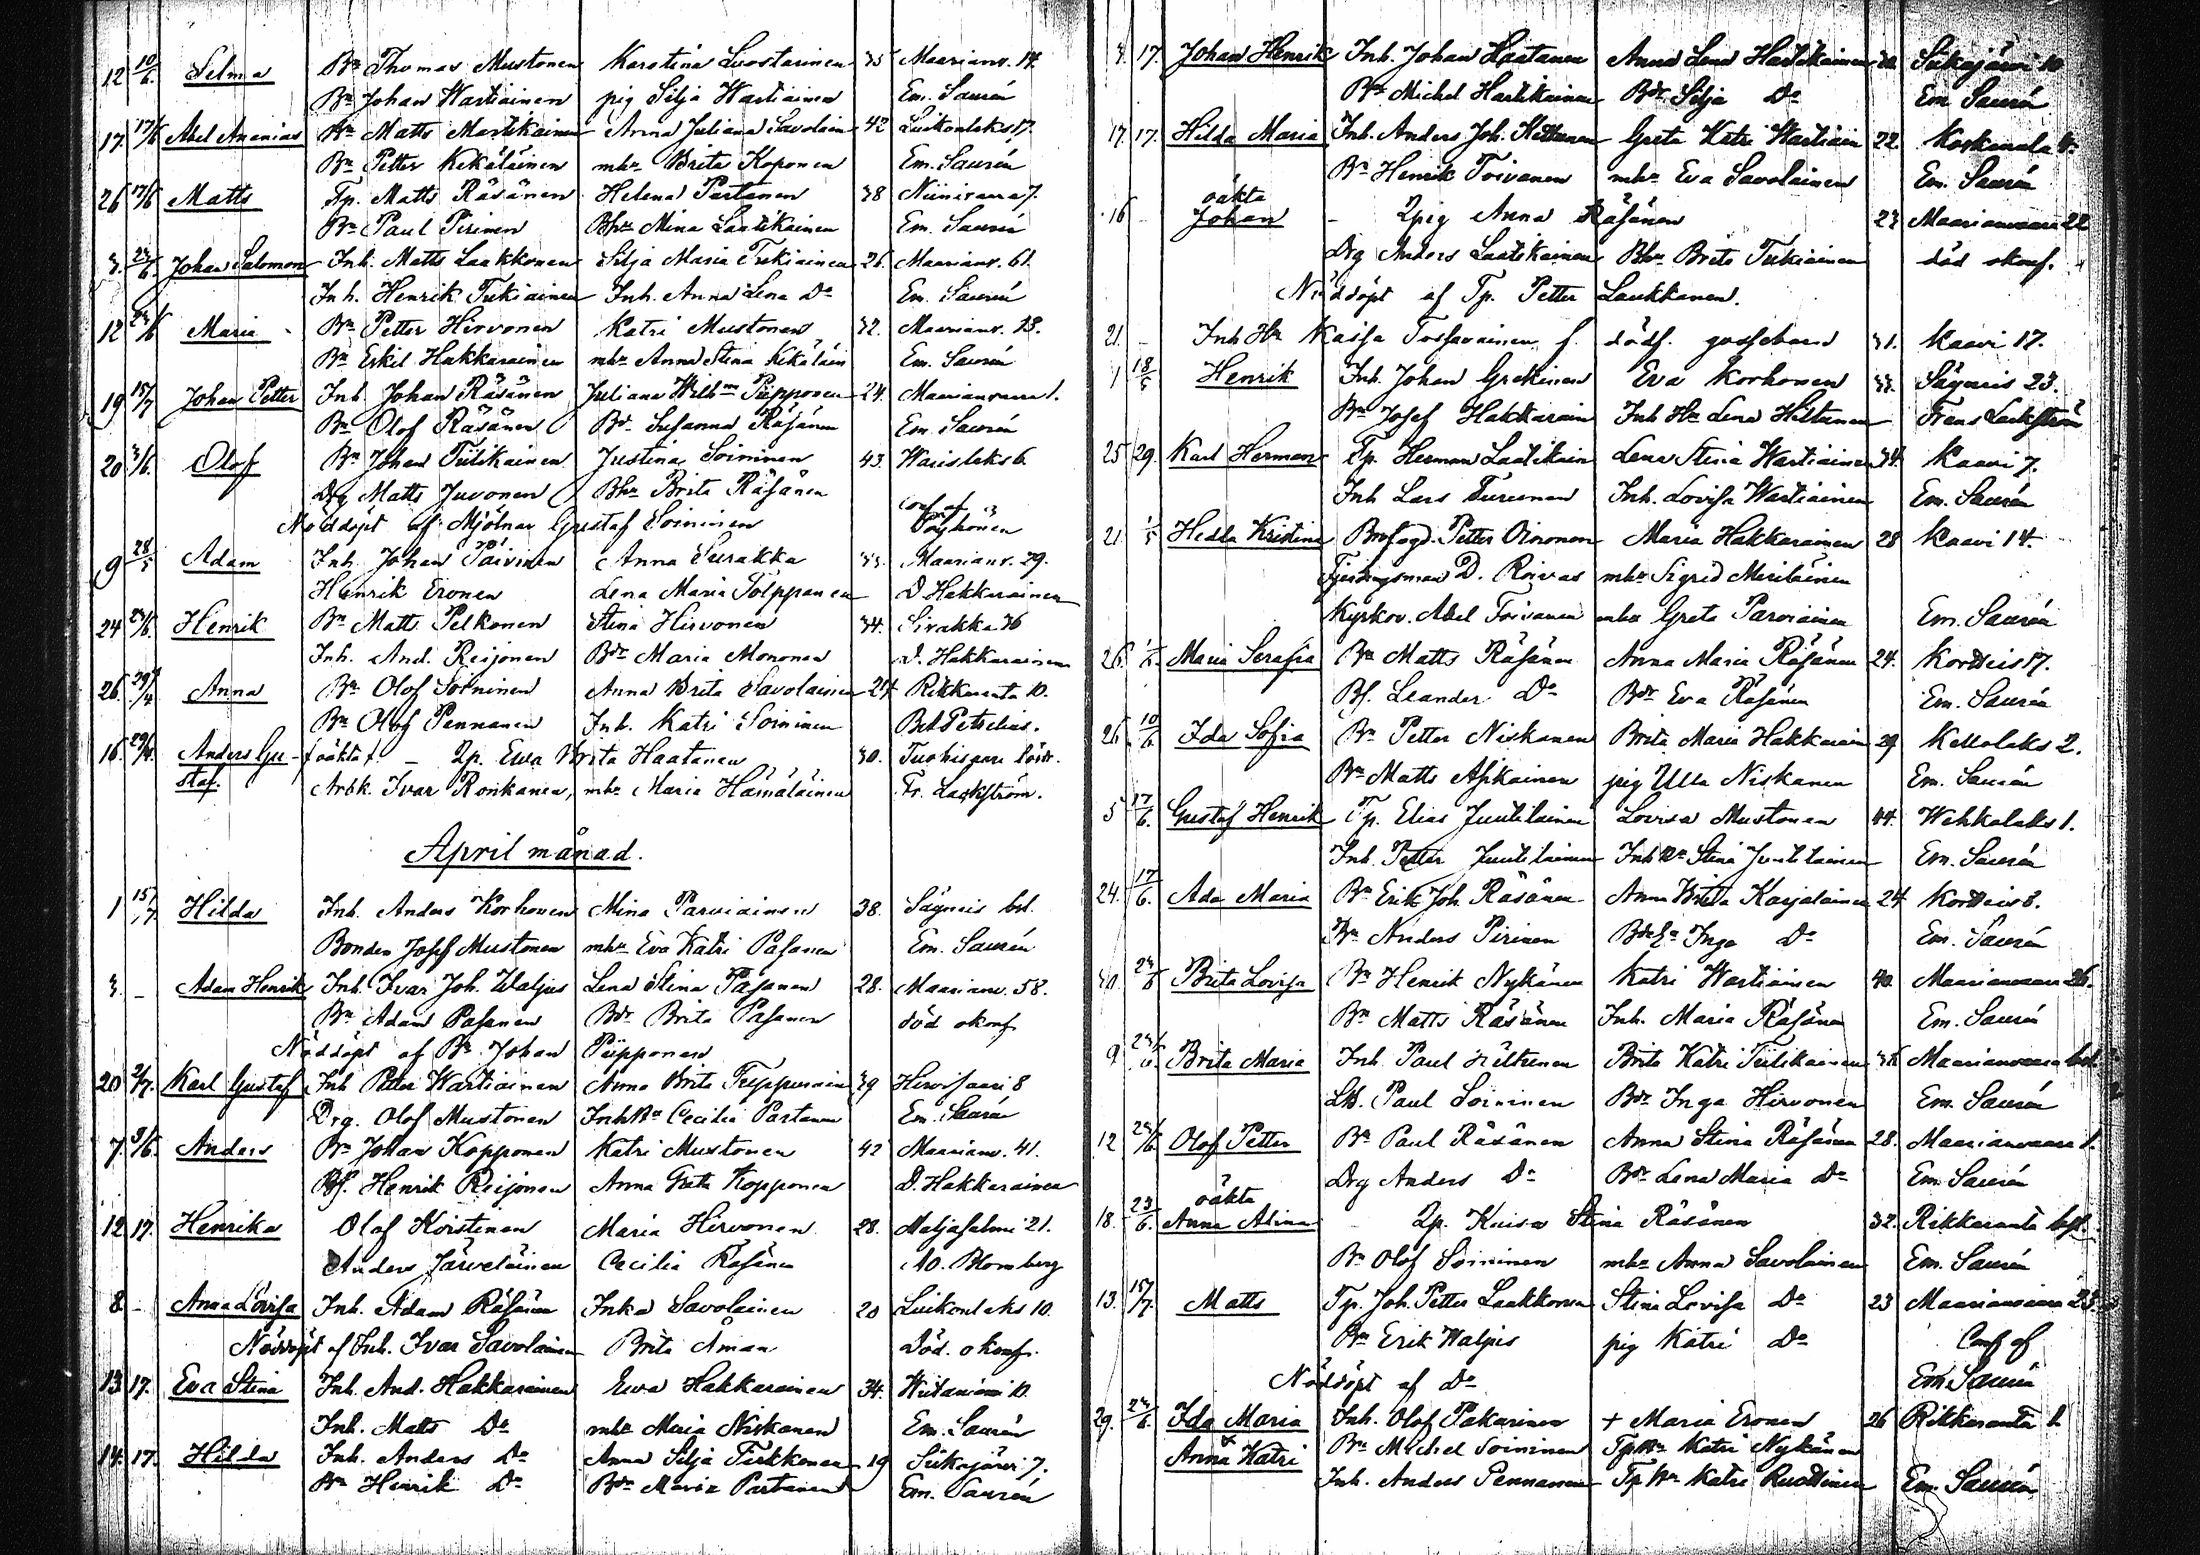 12 10/6 Selma Bn Thomas Mustonen Karolina Luostarinen 35 Maarianv. 14.
Bn Johan Wartiainen pig Silja Wartiainen Em. Saurén
17. 17/6 Abel Ananias Bn Matts Martikainen Anna Juliana Savolain 42 Luikonlaks 17.
Bn Petter Kekäläinen mhu Brita Koponen Em. Saurén
26 17/6 Matts Tp. Matts Räsänen Helena Partanen 38 Niinivaara 7.
Bn Paul Pirinen Bhu Mina Laatikainen Em. Saurén
3. 23/6. Johan Salomon Inh. Matts Laakkonen Silja Maria Tukiainen 26. Maarianv. 61.
Inh. Henrik Tukiainen Inh. Anna Lena Do Em. Saurén
12 24/6 Maria Bn Petter Hirvonen Katri Mustonen 32. Maarianv. 13.
Bn Eskil Hakkarainen mhu Anna Stina Kekäläin Em. Saurén
19 15/7 Johan Petter Inh. Johan Räsänen Juliana Wilhma Piipponen 24. Maarianvaara 1.
Bn Olof Räsänen Bdr. Susanna Räsänen Em. Saurén
20 3/6. Olof Bn Johan Tiilikainen Justina Soininen 43. Warislaks 6.
Drg Matts Juvonen Bhu Brita Räsänen conf. af
Nöddöpt af Mjölnar Gustaf Soininen Pöyhönen
9 28/5 Adam Inh. Johan Päivinen Anna Surakka 33. Maarianv. 29.
Henrik Eronen Lena Maria Tolppanen D. Hakkarainen
24 24/6. Henrik Bn Matts Pelkonen Stina Hirvonen 34. Sivakka 36
Inh. And. Reijonen Bdr Maria Mononen D. Hakkarainen
26. 29/4 Anna Bn Olof Soininen Anna Brita Savolainen 27 Rikkaranta 10.
Bn Olof Pennanen Inh. Katri Soininen Bet Petrelius.
16. 29/4. Anders Gu- (oäkta) – Qp. Ewa Brita Haatanen 30. Tuohisaari
staf. Arbk. Ivar Ronkanen, mhu Maria Hämäläinen Fr. Lackström.
April månad.
1 15/7 Hilda Inh. Anders Korhonen Mina Parviainen 38. Säyneis bol.
Bonden Josef Mustonen mhu Eva Katri Pasanen Em. Saurén
3. – Adam Henrik Inh. Ivar Joh. Waljus Lena Stina Pasanen 28. Maarianv. 58.
Bn Adam Pasanen Bdr Brita Pasanen död okonf.
Nöddöpt af Bn Johan Piipponen
20 2/7. Karl Gustaf Inh Petter Wartiainen Anna Brita Treppurain 39 Hirvisaari 8
Drg. Olof Mustonen Inh Hu Cecilia Partanen Em. Saurén
7. 3/6. Anders Bn Johan Kopponen Katri Mustonen 42 Maarianv. 41.
Bf. Henrik Reijonen Anna Greta Kopponen D. Hakkarainen
12 17. Henrika Olof Koistinen Maria Hirvonen 28. Maljasalmi 21.
Anders Järveläinen Cecilia Räsänen A. O. Blomberg
8. – Anna Lovisa Inh. Adam Räsänen Inka Savolainen 20 Luikonlaks 10.
Nöddöpt af Inh. Ivar Savolainen Brita Åman Död. okonf.
13 17. Eva Stina Inh. And. Hakkarainen Ewa Hakkarainen 34. Wiitaniemi 10.
Inh. Matts Do mhu Maria Niskanen Em. Saurén
14. 17. Hilda Inh. Anders Do Anna Silja Tirkkonen 19 Siikajärvi 7.
Bn Henrik Do Bdr Maria Partanen Em. Saurén
3. 17. Johan Henrik Inh. Johan Haatanen Anna Lena Hartikainen Siikajärvi 10
Bn Michel Hartikainen Bdr. Silja Do Em Saurén
17. 17. Hilda Maria Inh. Anders Joh. Kettunen Greta Katri Wartiain 22. Koskenala 4.
Bn Henrik Toivanen mhu Eva Savolainen Em. Saurén
oäkta
16 – Johan – Qpig Anna Räsänen 23 Maarianvaara 22
Drg Anders Laatikainen Bhu Brita Tukiainen död okonf.
Nöddöpt af Tp. Petter Laukkanen.
21. – Inh Hu Kaisa Tossavainen f. dödf. gossebarn 31. Kaavi 17.
1 18/5 Henrik Inh. Johan Grekinen Eva Korhonen 33. Säyneis 23.
Bn Josef Hakkarain Inh Hu Lena Hiltunen Frans Lackström
25 29. Karl Herman Tp. Herman Laatikain Lena Stina Wartiainen 34. Kaavi 7.
Inh Lars Turunen Inh. Lovisa Wartiainen Em. Saurén
21. 1/5 Hedda Kristina Brofogd. Petter Oinonen Maria Hakkarainen 28 Kaavi 14.
Fjerdingsman D. Roivas mhu Sigrid Miriläinen
Kyrkov. Abel Toivanen mhu Greta Parviainen Em. Saurén
26. 1/6. Maria Serafia Bn Matts Räsänen Anna Maria Räsänen 24. Kortteis 17.
Bf. Leander Do Bdr Eva Räsänen Em. Saurén
26. 10/6 Ida Sofia Bn Petter Niskanen Brita Maria Hakkarain 29 Kettolaks 2.
Bn Matts Asikainen pig Ulla Niskanen Em. Saurén
5 17/6. Gustaf Henrik Tp. Elias Juutilainen Lovisa Mustonen 44. Wihkalaks 1.
Inh. Petter Juutilainen Inh Hu Stina Juutilainen Em. Saurén
24. 17/6. Ada Maria Bn Erik Joh. Räsänen Anna Brita Karjalainen 24 Kortteis 8.
Bn Anders Pirinen Inga Do Em. Saurén
30. 24/6 Brita Lovisa Bn Henrik Nykänen Katri Wartiainen 40. Maarianvaara 26.
Bn Matts Räsänen Inh. Maria Räsänen Em. Saurén
9 24/6 Brita Maria Inh. Paul Hiltunen Brita Katri Tiilikainen Maarianvaara bol.
Ls. Paul Soininen Bdr Inga Hirvonen Em. Saurén
12 24/6 Olof Petter Bn Paul Räsänen Anna Stina Räsänen 28. Maarianvaara 1.
Drg Anders Do Bdr Lena Maria Do Em. Saurén
oäkta
18. 23/6. Anna Alina Qp. Kaisa Stina Räsänen 32. Rikkaranta bol.
Bn Olof Soininen mhu Anna Savolainen Em. Saurén
13. 15/7. Matts Tp. Joh. Petter Laakkonen Stina Lovisa Do 23 Maarianvaara 23
Bn Erik Waljus pig Katri Do Conf af
Nöddöpt af Do Em. Saurén
29. 24/6. Ida Maria Inh. Olof Pakarinen + Maria Eronen 26 Rikkaranta 1.
&
Anna Katri Bn Michel Soininen Tp Hu Katri Nykänen
Inh. Anders Pennanen Tp Hu Katri Ruottinen Em. Saurén